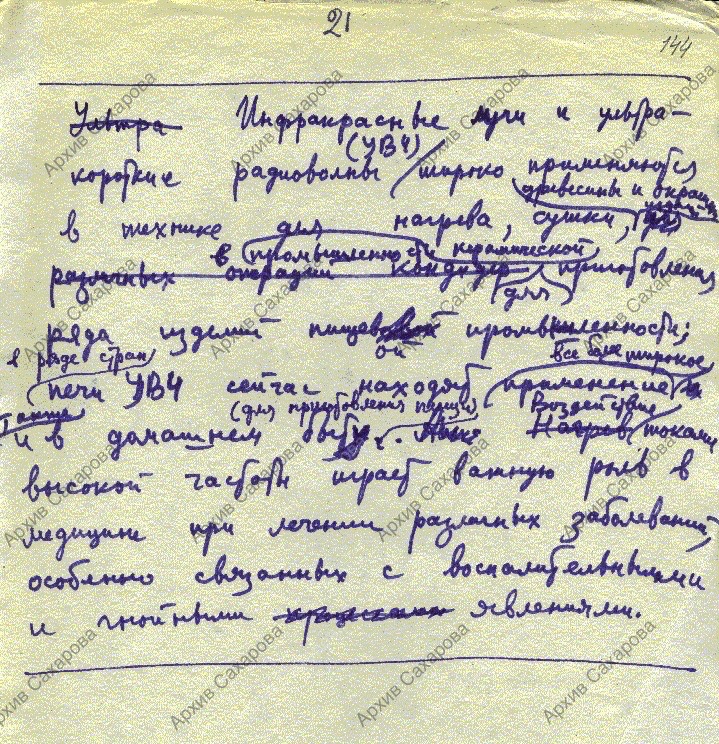 21
144
Ультра Инфракрасные лучи и ультра-
(УВЧ)
короткие радиоволны широко применяются
древесины и окраш
в технике для нагрева, сушки,
в промышленности керамической
различных операции приготовления
(для)
ряда изделий пищевой промышленности;
ой
в ряде стран все более широкое
печи УВЧ сейчас находят применение
также (для приготовления пищи) Воздействие
и в домашнем быту. Нагрев токами
высокой частоты играет важную роль в
медицине при лечении различных заболеваний,
особенно связанных с воспалительными
и гнойными явлениями.
Архив Сахарова